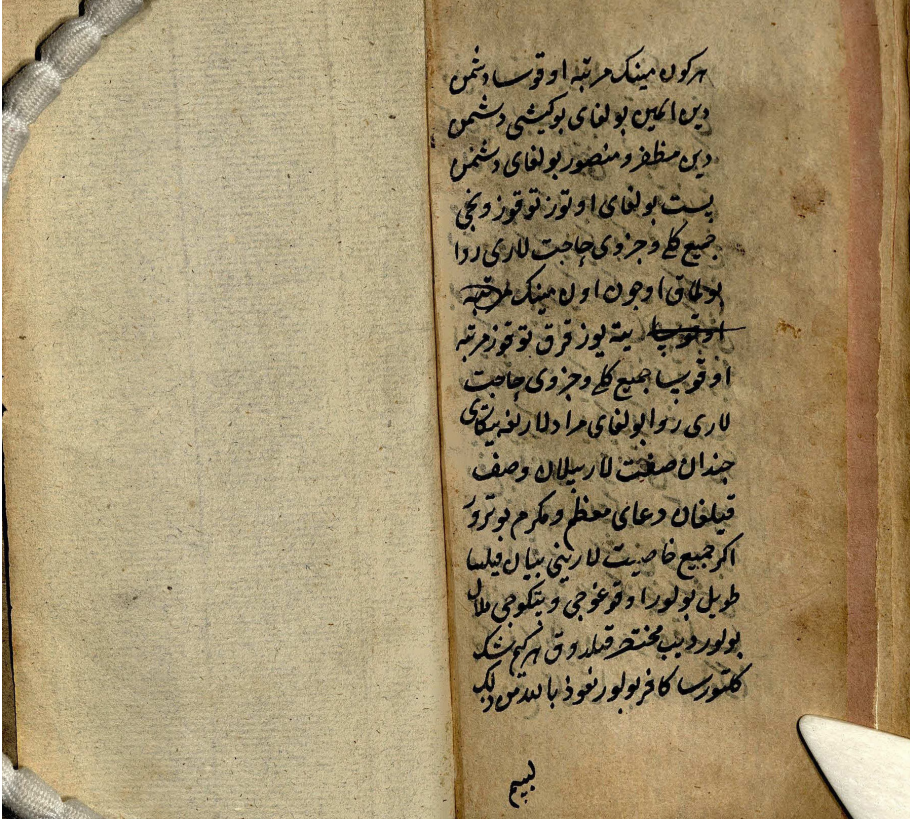 هر کون مینک مرتبه اوقوسا دشمن
دین ایمین بولغای بو کیشی دشمن
دین مظفر و منصور بولغای دشمن
پست بولغای اوتوز توقوزونجی
جمیع کلی و جزوی حاجت لاری روا
بولماق اوجون اون مینک مرتبه
اوقوسا یته یوز قرق توقوز مرتبه
اوقوسا جمیع کلی و جزوی حاجت
لاری روا بولغای مرادلارغه ییتکای
چندان صفت لار بیلان وصف
قیلغان دعای معظم و مکرم بو ترور
اکر جمیع خاصیت لارینی بیان قیلسا
طویل بولور اوقوغوجی و بتکوجی ملال
بولور دیب مختصر قیلدوق هر کیم شک
کلتورسا کافر بولور نعوذ بالله من ذلک